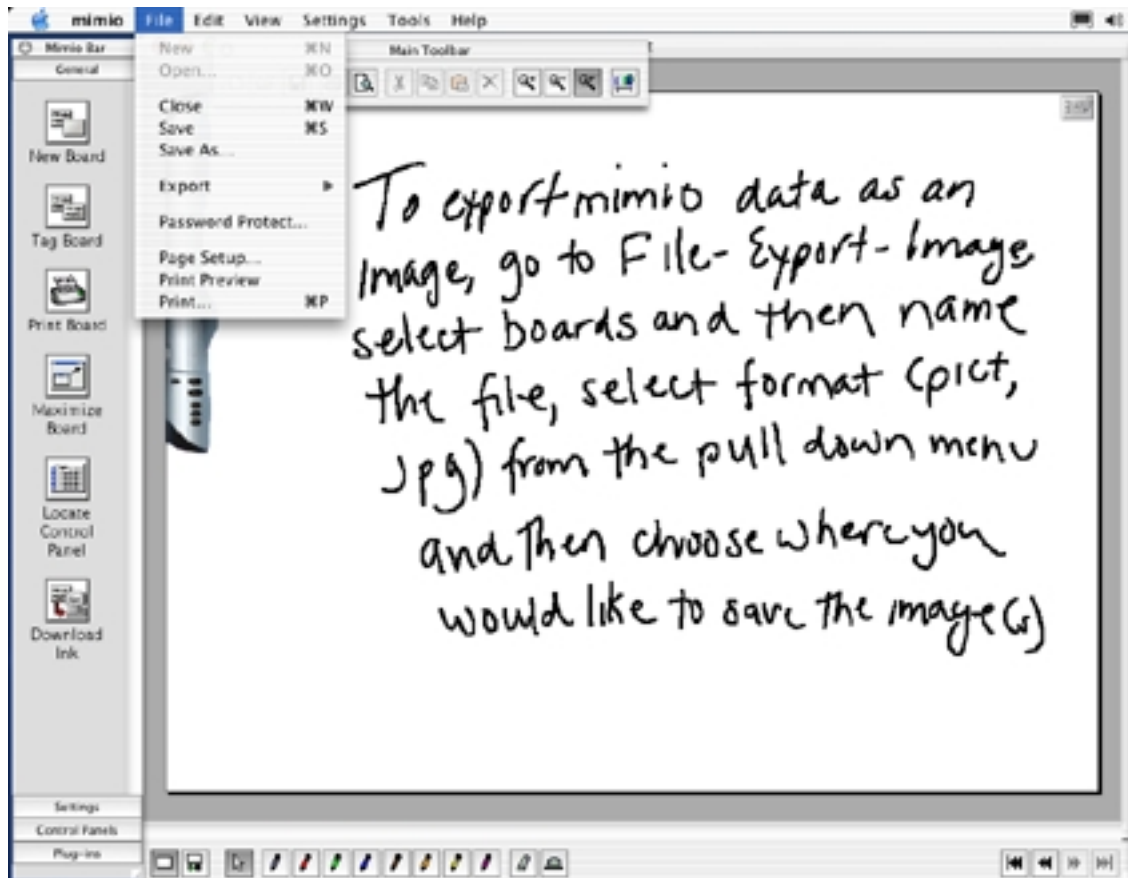 mimio File Edit View Settings Tools Help
Mimio Bar
General
New Board
Tag Board
Print Board
Maximize
Board
Locate
Control
Panel
Download
Ink
Settings
Control Panels
Plug-ins
New ⌘N
Open... ⌘O
Close ⌘W
Save ⌘S
Save As...
Export
Password Protect...
Page Setup...
Print Preview
Print... ⌘P
Main Toolbar
To export mimio data as an
Image, go to File - Export - Image,
select boards and then name
the file, select format (pict,
Jpg) from the pull down menu
and then choose where you
would like to save the image(s)